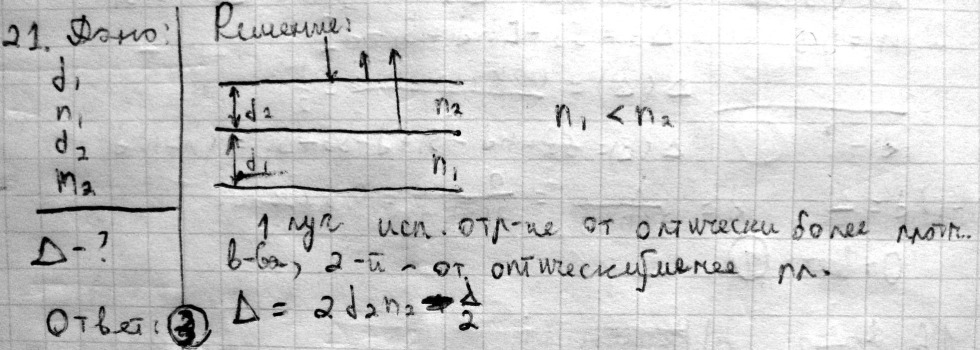 21. Дано:
d₁
n₁
d₂
n₂
Δ - ?
Решение:
d₂ n₂
d₁ n₁
n₁ < n₂
1 луч исп. отр-ие от оптически более плотн.
в-ва, 2-й - от оптически менее пл.
Δ = 2d₂n₂ - λ/2
Ответ: 3